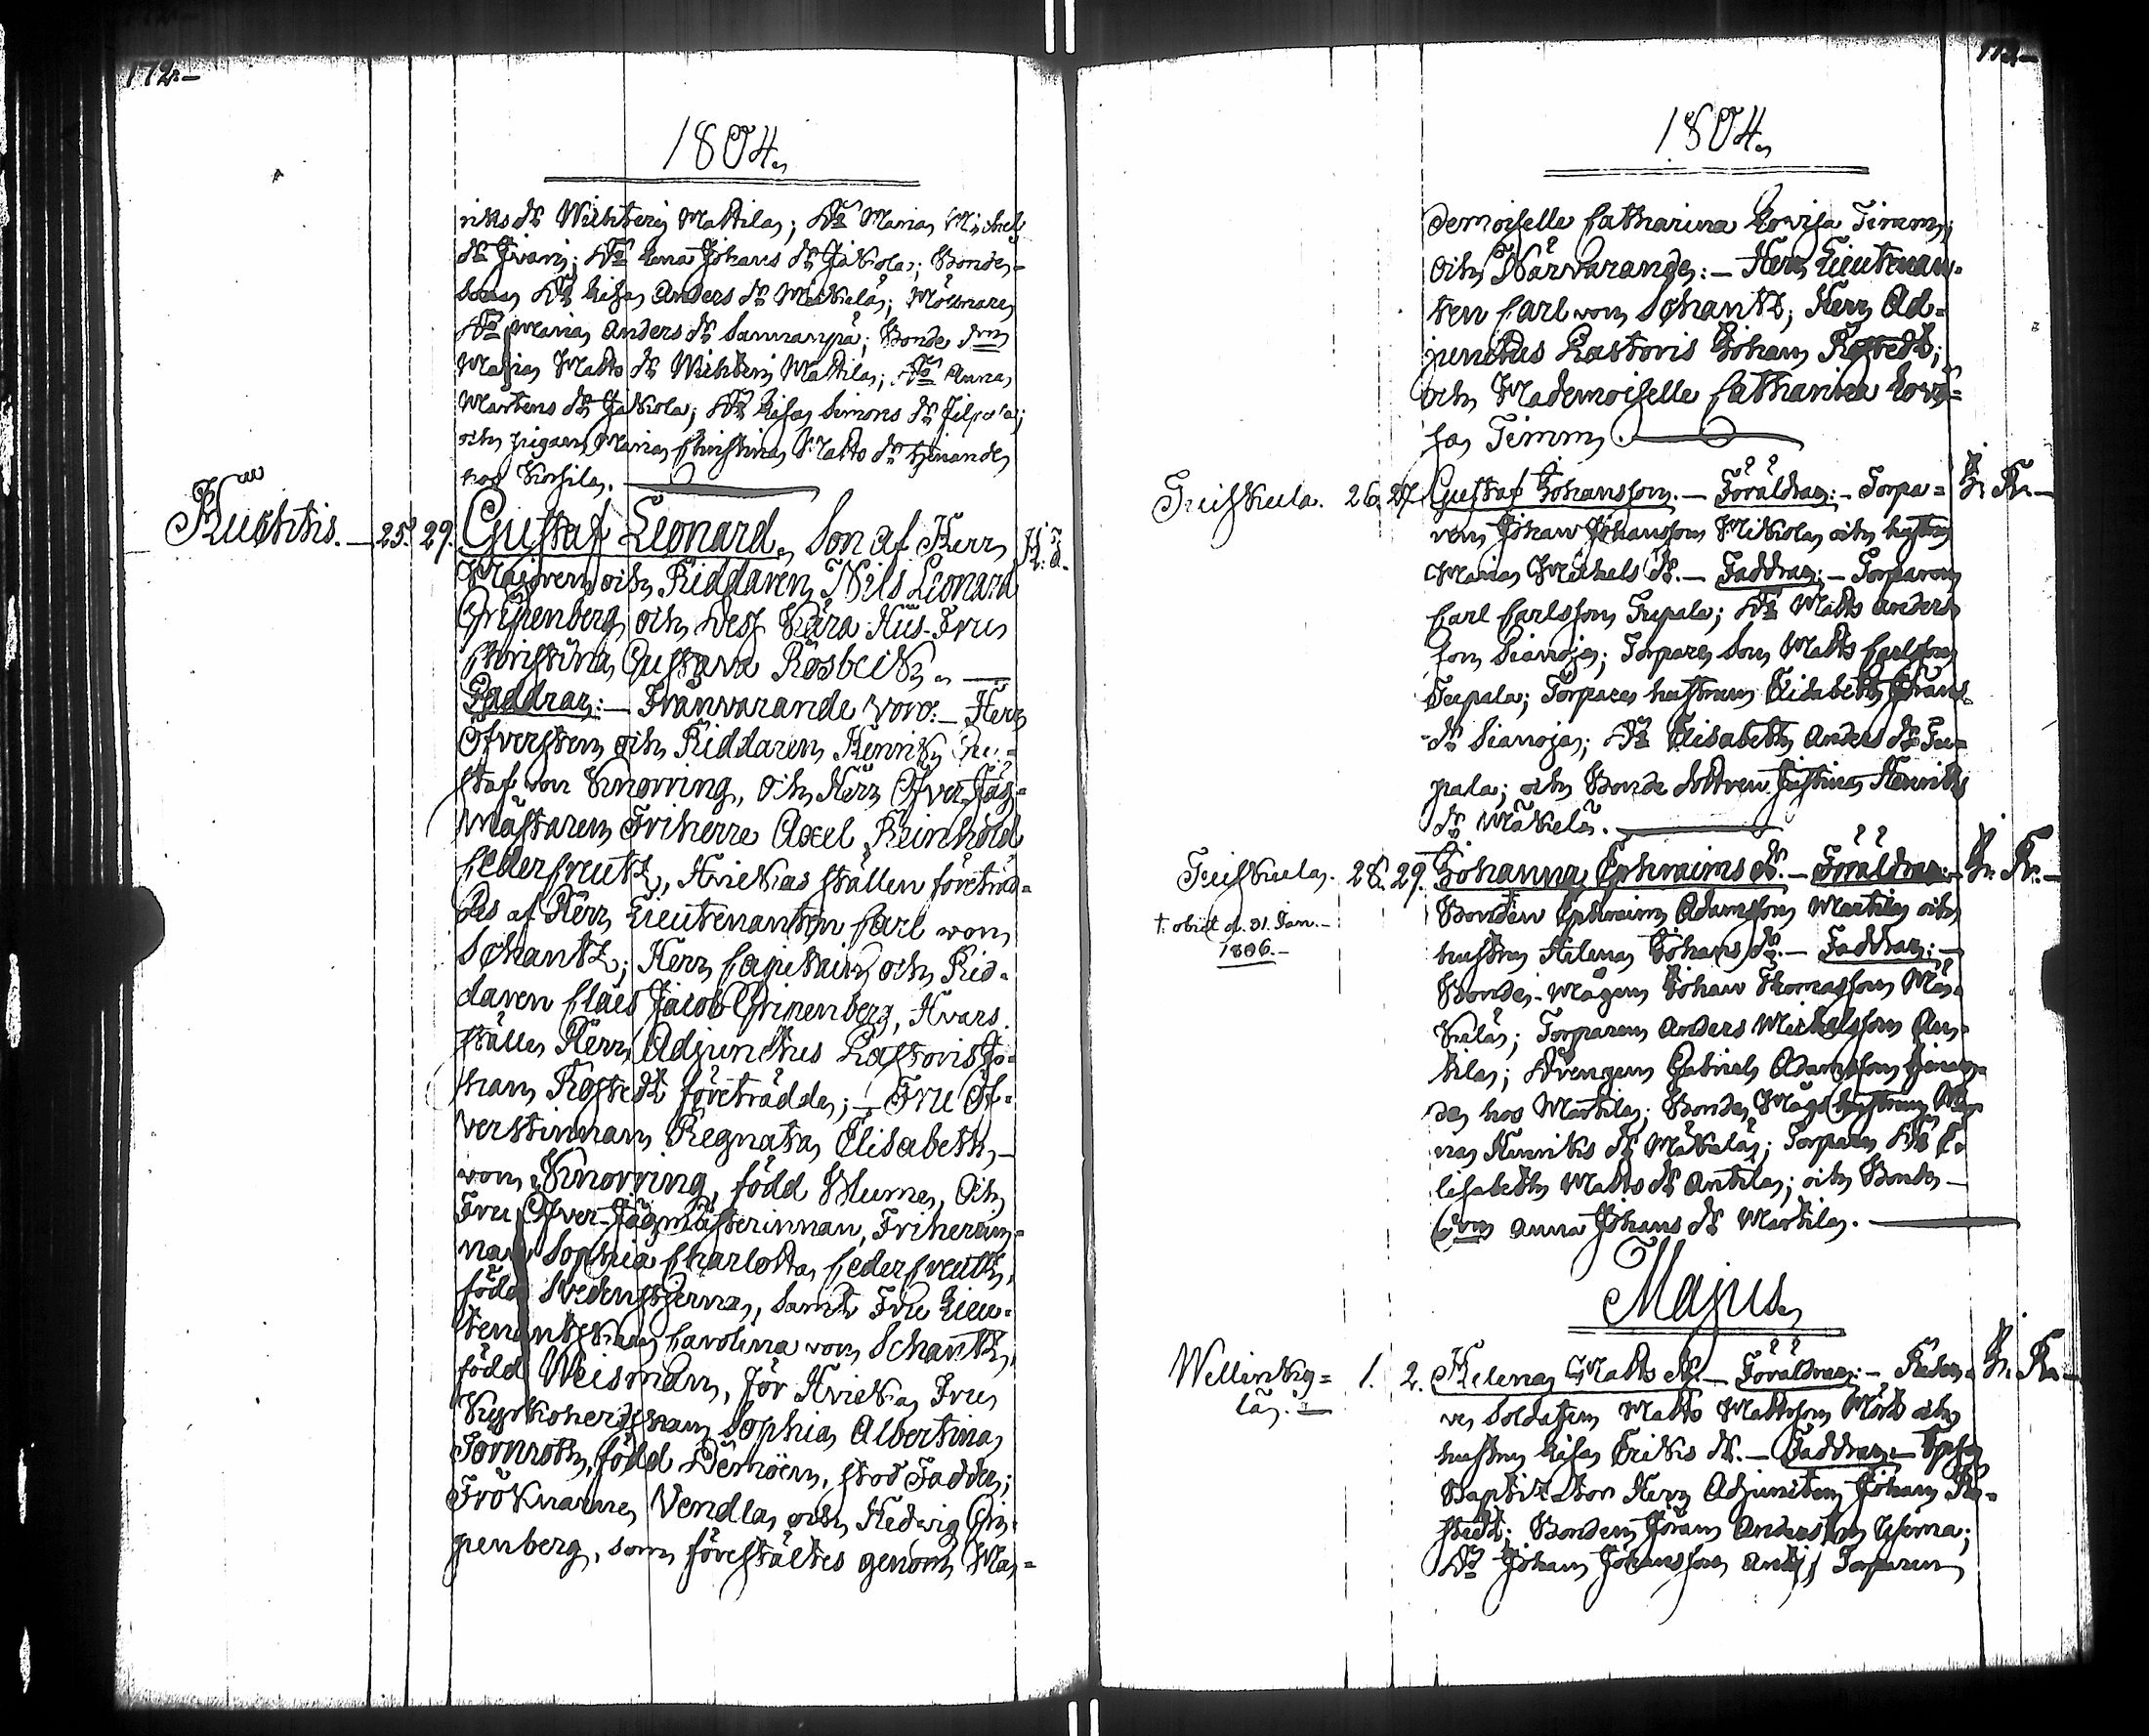 172.—
1804.
riks dr Wihtteri Mattila; Do Maria Michels
dr Jivari; Do Lena Johans dr Jakiola; Bonde-
Do Lisa Anders dr Mäkelä; Mölnare
Do Maria Anders dr Sammanpä; Bonde
Maria Matts dr Wihtteri Mattila; Do Anna
Mårtens dr Jakiola; Do Lisa Simons dr Filpola;
och pigan Maria Christina Matts dr tjenande
hos
Kuchtis. — 25. 29. Gustaf Leonard, Son af Herr
Majoren och Riddaren Nils Leonard
Gripenberg och Dess Kära Hus-Fru
Christina Gustava Rosbeck. —
Faddrar: — Frånvarande voro: — Herr
Öfversten och Riddaren Henrik Gu-
staf von Knorring, och Herr Öfver-Jäg-
mästaren Friherre Axel Reinhold
Cedercreutz, Hvickas ställen företräd-
des af Herr Lieutenanten Carl von
Schantz; Herr Capitain och Rid-
daren Claes Jacob Gripenberg, Hvars
ställe Herr Adjunctus Pastoris Jo-
han Rostedt företrädde; — Fru Öf-
verstinnan Regnata Elisabeth
von Knorring, född Blume, Och
Fru Öfver-Jägmästerinnan, Friherrin-
nan Sophia Charlotta Cedercreutz,
född Svedenstjerna, samt Fru Lieu-
tenantskan Carolina von Schantz,
född Weisman, för Hvicka Fru
Kyrkoherdskan Sophia Albertina
Tornroth, född Demoen, stod Fadder;
Fröknarne Vendla och Hedvig Gri-
penberg, som föreställtes genom Ma-
173.—
1804.
demoiselle Catharina Lovisa Timm;
och Närvarande: — Herr Lieutenan-
ten Carl von Schantz; Herr Ad-
junctus Pastoris Johan Rostedt;
och Mademoiselle Catharina Lovi-
sa Timm.
26. 27. Gustaf Johansson. — Föräldrar: — Torpa-
ren Johan Johansson Mikola och hustru
Maria Michels dr. — Faddrar: — Torparen
Carl Carlsson Tupala; Do Matts Anders
son Sianoja; Torpare Son Matts Carlsson
Tupala; Torpare hustrun Elisabeth Johans
dr Sianoja; Do Elisabeth Anders dr Tu-
pala; och Bonde dottren Justina Henriks
dr Mäkelä.
28. 29. Johanna Ephraims dr. — Föräldrar: —
Bonden Ephraim Adamsson Martila och
hustru Helena Johans dr. — Faddrar: —
† obiit d. 31. Jan. —
1806. —
Bonde-Mågen Johan Thomasson Mä-
kelä; Torparen Anders Michelsson An-
tila; Drengen Gabriel Adamsson tjenan-
de hos Martila; Bonde Mågs hustrun Ma-
ria Henriks dr Mäkelä; Torpare Do E-
lisabeth Matts dr Antila; och Bonde-
Anna Johans dr Martila.
Majus.
Wellinky-
lä. — 1. 2. Helena Matts dr. — Föräldrar: —
Soldaten Matts Mattsson Mört och
hustru Lisa Eriks dr. — Faddrar: —
Baptizator Herr Adjuncten Johan Ro-
stedt; Bonden Johan Andersson
Do Johan Johansson Torparen